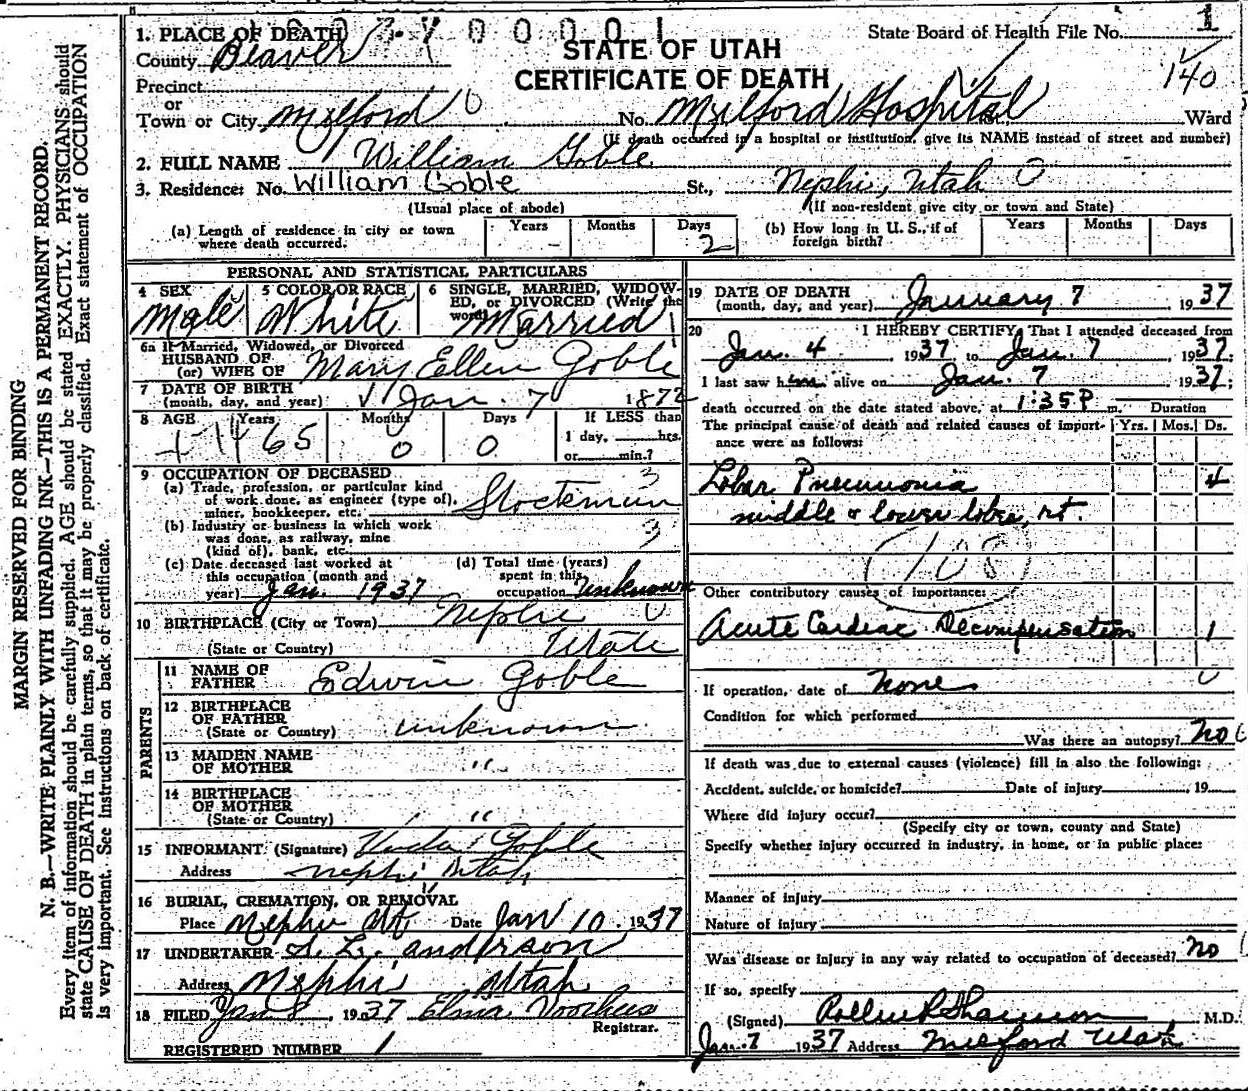 MARGIN RESERVED FOR BINDING
N. B.—WRITE PLAINLY WITH UNFADING INK—THIS IS A PERMANENT RECORD.
Every item of information should be carefully supplied. AGE should be stated EXACTLY. PHYSICIANS should
state CAUSE OF DEATH in plain terms, so that it may be properly classified. Exact statement of OCCUPATION
is very important. See instructions on back of certificate.
STATE OF UTAH
CERTIFICATE OF DEATH
State Board of Health File No. 1
140
1. PLACE OF DEATH
County Beaver
Precinct
or
Town or City Milford No. Milford Hospital Ward
(If death occurred in a hospital or institution, give its NAME instead of street and number)
2. FULL NAME William Goble
3. Residence: No. William Goble St., Nephi, Utah
(Usual place of abode) (If non-resident give city or town and State)
(a) Length of residence in city or town where death occurred. Years - Months Days 2
(b) How long in U. S., if of foreign birth? Years Months Days
PERSONAL AND STATISTICAL PARTICULARS
4 SEX Male
5 COLOR OR RACE White
6 SINGLE, MARRIED, WIDOWED, or DIVORCED (Write the word) Married
6a If Married, Widowed, or Divorced
HUSBAND OF
(or) WIFE OF Mary Ellen Goble
7 DATE OF BIRTH
(month, day, and year) Jan. 7 1872
8 AGE Years 65 Months 0 Days 0 If LESS than
1 day, hrs.
or min.?
9 OCCUPATION OF DECEASED
(a) Trade, profession, or particular kind
of work done, as engineer (type of),
miner, bookkeeper, etc. Stockman 3
(b) Industry or business in which work
was done, as railway, mine
(kind of), bank, etc. 3
(c) Date deceased last worked at
this occupation (month and
year) Jan. 1937
(d) Total time (years)
spent in this
occupation unknown
10 BIRTHPLACE (City or Town) Nephi
(State or Country) Utah
PARENTS
11 NAME OF
FATHER Edwin Goble
12 BIRTHPLACE
OF FATHER
(State or Country) unknown
13 MAIDEN NAME
OF MOTHER "
14 BIRTHPLACE
OF MOTHER
(State or Country) "
15 INFORMANT (Signature) Goble
Address Nephi Utah
16 BURIAL, CREMATION, OR REMOVAL
Place Nephi Ut Date Jan 10 1937
17 UNDERTAKER A. L. Anderson
Address Nephi Utah
18 FILED Jan 8, 1937 Elma Voorhees
Registrar.
REGISTERED NUMBER 1
19 DATE OF DEATH
(month, day, and year) January 7 1937
20 I HEREBY CERTIFY, That I attended deceased from
Jan. 4 1937 to Jan. 7, 1937.
I last saw him alive on Jan. 7 1937;
death occurred on the date stated above, at 1:35 P m. Duration
The principal cause of death and related causes of importance were as follows: Yrs. Mos. Ds.
Lobar Pneumonia 4
middle & lower lobes, rt.
108
Other contributory causes of importance:
Acute Cardiac Decompensation 1
If operation, date of None
Condition for which performed
Was there an autopsy? No
If death was due to external causes (violence) fill in also the following:
Accident, suicide, or homicide? Date of injury 19
Where did injury occur?
(Specify city or town, county and State)
Specify whether injury occurred in industry, in home, or in public place:
Manner of injury
Nature of injury
Was disease or injury in any way related to occupation of deceased? No
If so, specify
(Signed) Shannon M.D.
Jan. 7 1937 Address Milford Utah